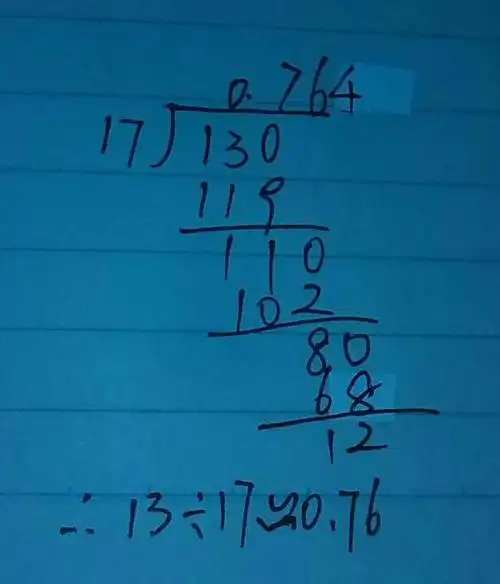 0.764
17)130
119
110
102
80
68
12
∴ 13÷17≈0.76